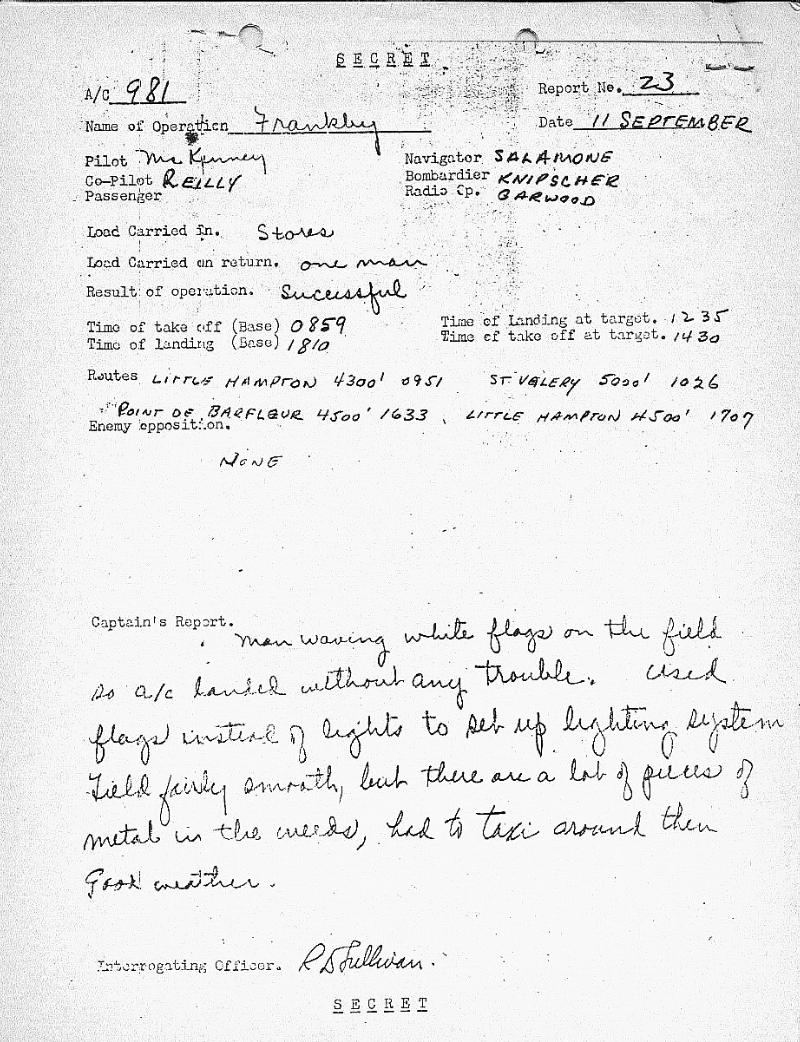 SECRET
A/C 981 Report No. 23
Name of Operation Frankby Date 11 SEPTEMBER
Pilot McKenney Navigator SALAMONE
Co-Pilot REILLY Bombardier KNIPSCHER
Passenger Radio Op. GARWOOD
Load Carried In. Stores
Load Carried on return. one man
Result of operation. Successful
Time of take off (Base) 0859 Time of Landing at target. 1235
Time of landing (Base) 1810 Time of take off at target. 1430
Routes LITTLE HAMPTON 4300' 0951 ST VALERY 5000' 1026
POINT DE BARFLEUR 4500' 1633, LITTLE HAMPTON 4500' 1707
Enemy opposition.
NONE
Captain's Report.
Man waving white flags on the field
so a/c landed without any trouble. Used
flags instead of lights to set up lighting system
Field fairly smooth, but there are a lot of pieces of
metal in the weeds, had to taxi around them
Good weather.
Interrogating Officer. R D Sullivan.
SECRET